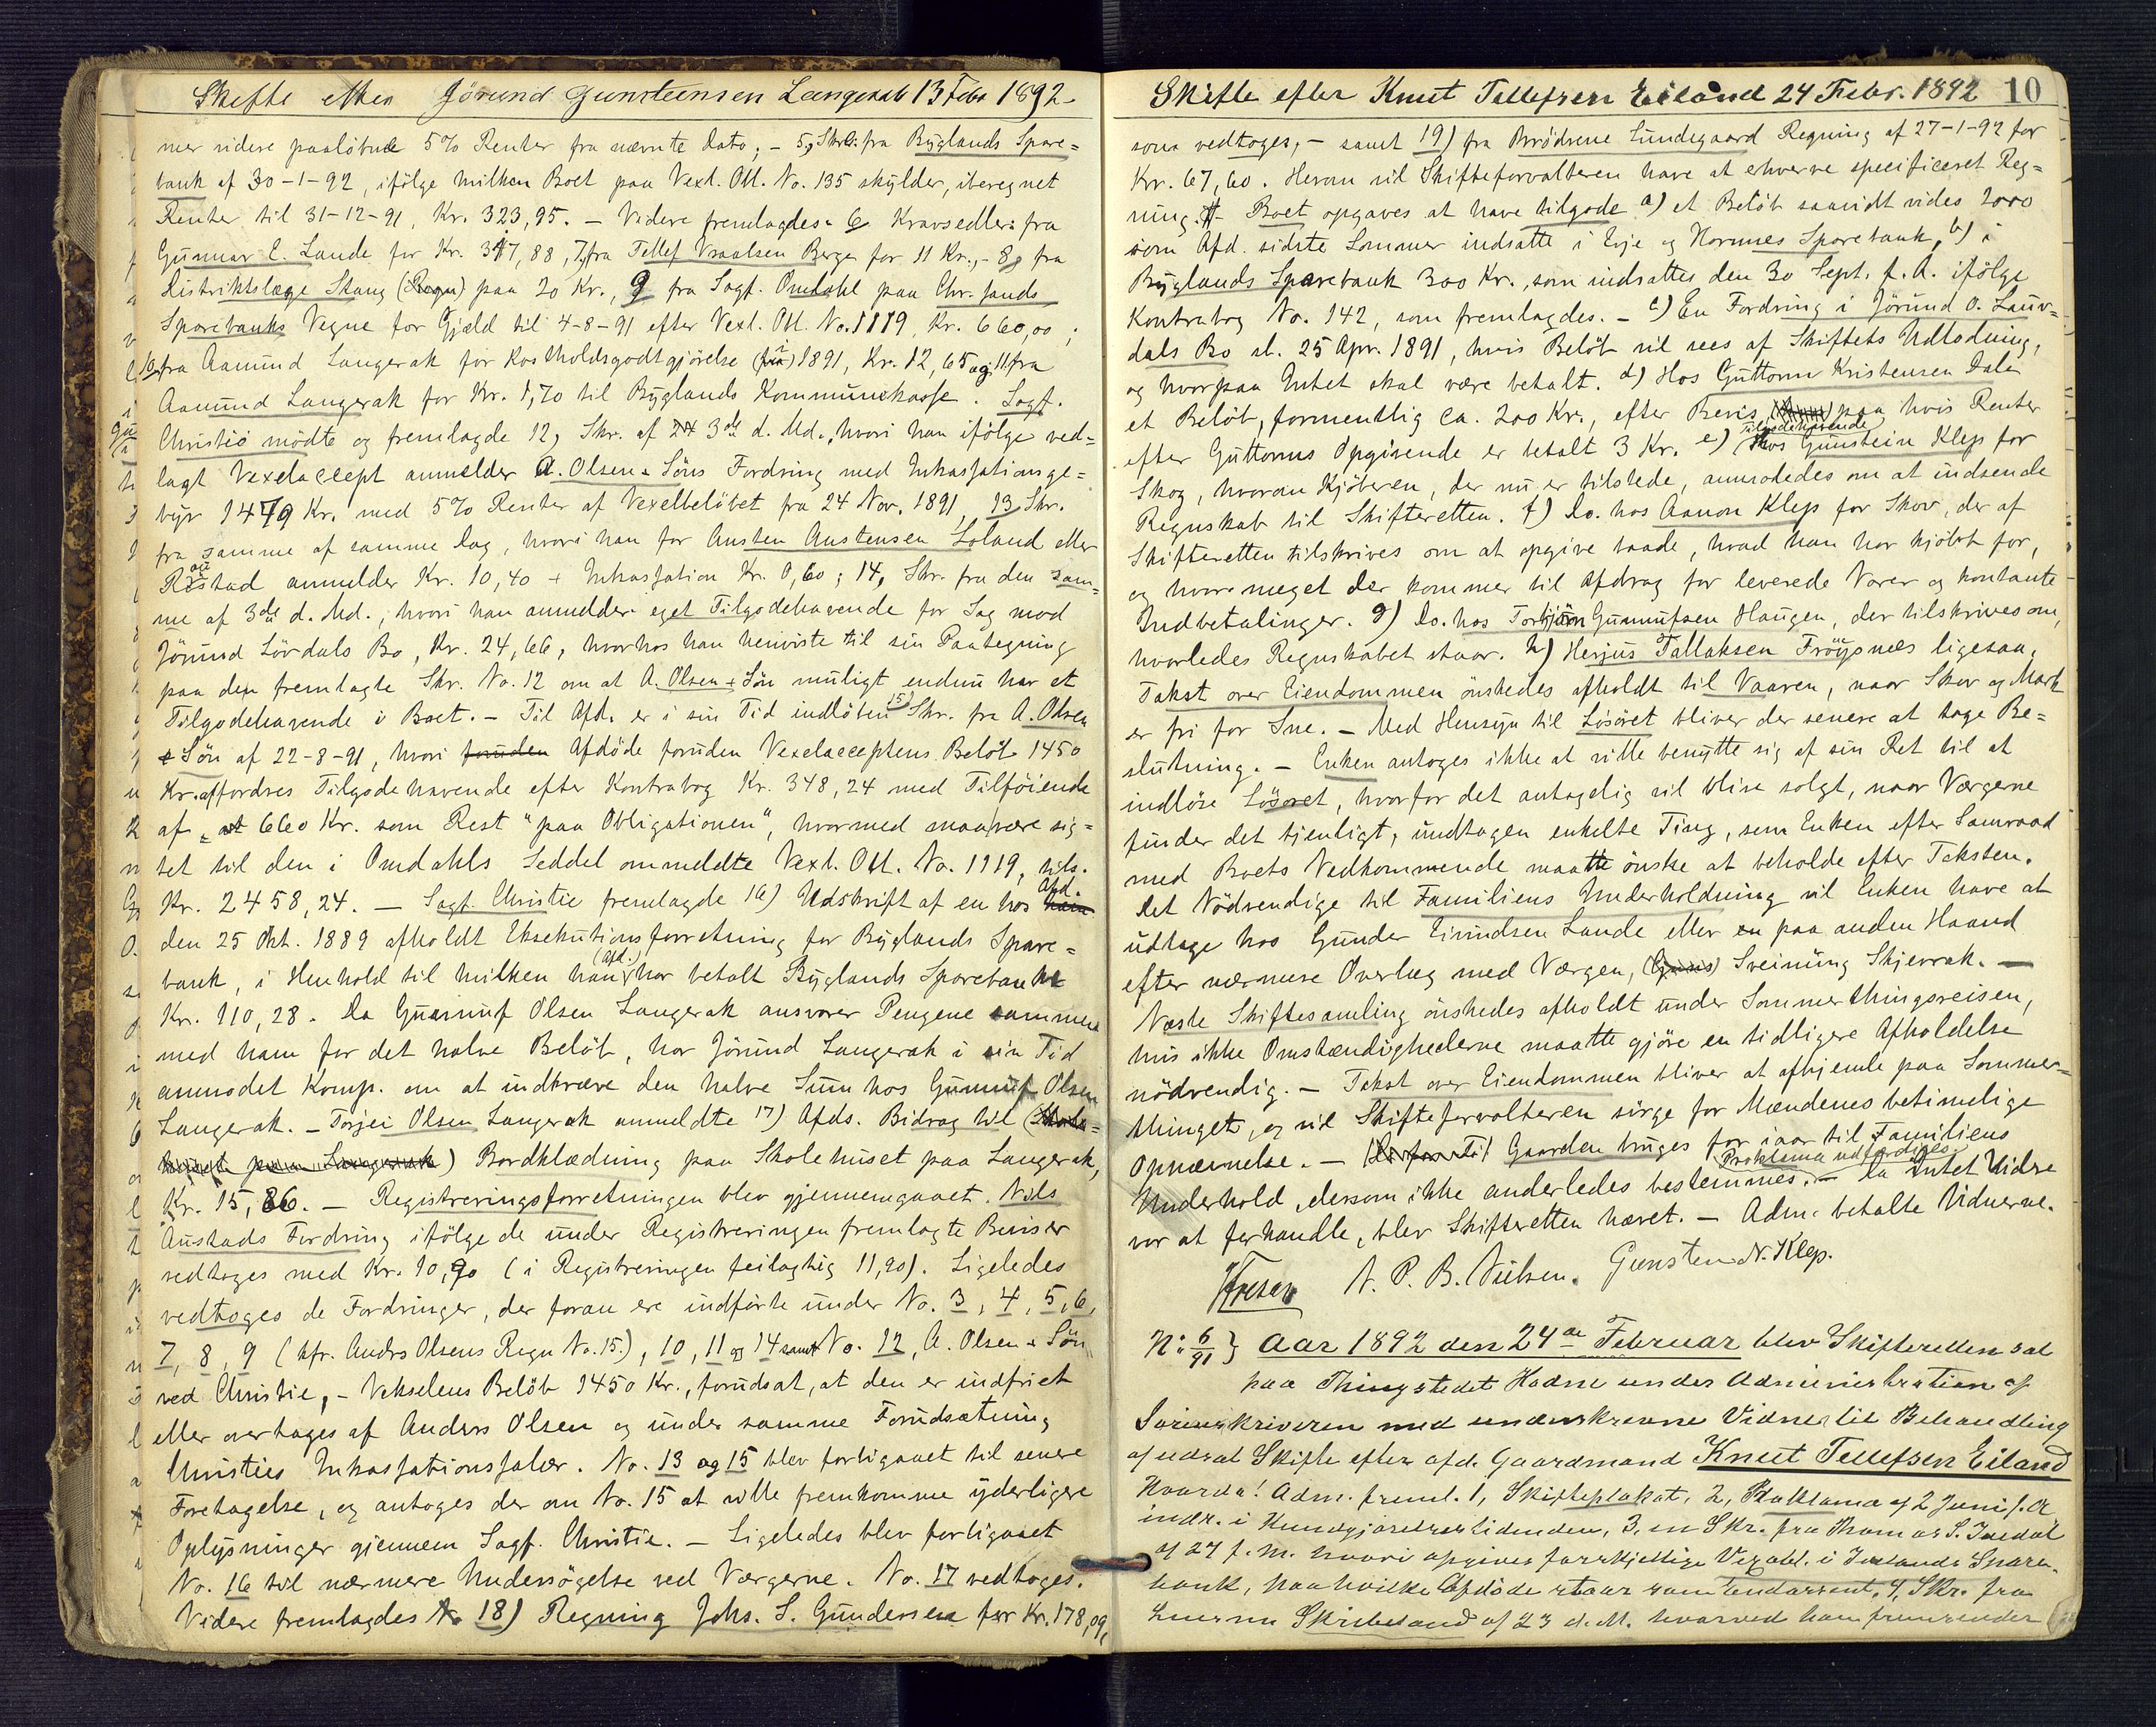 Skifte efter Jörund Gunsteinsen Langerak 13 Febr 1892.
mer videre paaløbne 5% Renter fra nævnte Dato; – 5, Skr. fra Byglands Spare=
bank af 30-1-92, ifölge hvilken Boet paa Vexl. Obl. No. 135 skylder, iberegnet
Renter til 31-12-91, Kr. 323,95. – Videre fremlagdes: 6 Kravsedler: fra
Gunnar E. Lande for Kr. 347,88, 7, fra Tellef Vraalsen Berge for 11 Kr., – 8, fra
Distriktslæge Stang (Regn) paa 20 Kr., 9 fra Sagf. Omdahl paa Chr.sands
Sparebanks Vegne for Gjæld til 4-8-91 efter Vexl. Obl. No. 1119, Kr. 660,00;
10, fra Aamund Langerak for Kostholdsgodtgjörelse i 1891, Kr. 12,65 og 11 fra
Aamund Langerak for Kr. 1,70 til Byglands Kommunekasse. Sagf.
Christie mödte og fremlagde 12, Skr. af 3de d. Md., hvori han ifölge ved=
lagt Vexelaccept anmelder A. Olsen & Söns Fordring med Inkassationsge=
byr 1479 Kr. med 5% Renter af Vexelbelöbet fra 24 Nov. 1891, 13 Skr.
fra samme af samme Dag, hvori han for Austen Austensen Loland eller
Rstad anmelder Kr. 10,40 + Inkassation Kr. 0,60; 14, Skr. fra den sam=
me af 3de d. Md., hvori han anmelder eget Tilgodehavende for Sag mod
Jörund Lövdals Bo, Kr. 24,66, hvorhos han henviste til sin Paategning
paa den fremlagte Skr. No. 12 om at A. Olsen & Sön muligt endnu har et
Tilgodehavende i Boet. – Til Afd. er i sin Tid indlöben 15) Skr. fra A. Olsen
& Sön af 22-8-91, hvori foruden Afdöde foruden Vexelacceptens Belöb 1450
Kr. affordres Tilgodehavende efter Kontrabog Kr. 348,24 med Tilföiende
af "at 660 Kr. som Rest "paa Obligationen", hvormed maa være sig=
tet til den i Omdahls Seddel ommeldte Vexl. Obl. No. 1119, tils.
Kr. 2458,24. – Sagf. Christie fremlagde 16) Udskrift af en hos Afd.
den 25 Okt. 1889 afholdt Eksekutionsforretning for Byglands Spare=
bank, i Henhold til hvilken han (Afd.) har betalt Byglands Sparebank
Kr. 110,28. Da Gunnuf Olsen Langerak ansvarer Pengene sammen
med ham for det halve Belöb, har Jörund Langerak i sin Tid
anmodet Komp. om at indkræve den halve Sum hos Gunnuf Olsen
Langerak. – Torjei Olsen Langerak anmeldte 17) Afds. Bidrag til
Bordklædning paa Skolehuset paa Langerak,
Kr. 15,86. – Registreringsforretningen blev gjennemgaaet. Nils
Austads Fordring ifölge de under Registreringen fremlagte Beviser
vedtoges med Kr. 10,90 (i Registreringen feilagtig 11,90). Ligeledes
vedtoges de Fordringer, der foran ere indförte under No. 3, 4, 5, 6,
7, 8, 9 (kfr. Andrs Olsens Regn No. 15.), 10, 11 og 14 samt No. 12, A. Olsen & Sön
ved Christie, – Vekselens Belöb 1450 Kr., forudsat, at den er indfriet
eller overtages af Anders Olsen og under samme Forudsætning
Christies Inkassationssalær. No. 13 og 15 blev forbigaaet til senere
Foretagelse, og antoges der om No. 15 at ville fremkomme yderligere
Oplysninger gjennem Sagf. Christie. – Ligeledes blev forbigaaet
No. 16 til nærmere Undersögelse ved Værgerne. No. 17 vedtoges.
Videre fremlagdes 18) Regning Johs. S. Gundersen for Kr. 178,09,
Skifte efter Knut Tellefsen Eiland 24 Febr. 1892 10
som vedtoges, – samt 19) fra Brödrene Lundegaard Regning af 27-1-92 for
Kr. 67,60. Herom vil Skifteforvalteren have at erhverve specificeret Reg=
ning. – Boet opgaves at have tilgode a) et Belöb saavidt vides 2000
som Afd. sidste Sommer indsatte i Evje og Hornnes Sparebank, b) i
Byglands Sparebank 300 Kr., som indsattes den 30 Sept. f. A. ifölge
Kontrabog No. 142, som fremlagdes. – c) En Fordring i Jörund O. Lauv=
dals Bo sl. 25 Apr. 1891, hvis Belöb vil sees af Skiftets Udlodning,
og hvorpaa Intet skal være betalt. d) Hos Guttorm Kristensen Dale
et Belöb, formentlig ca. 200 Kr., efter Bevis, paa hvis Renter
efter Guttorms Opgivende er betalt 3 Kr. e) Tilgodehavende hos Gunstein Klep for
Skog, hvorom Kjöberen, der nu er tilstede, anmodedes om at indsende
Regnskab til Skifteretten. f) Do. hos Aanon Klep for Skov, der af
Skifteretten tilskrives om at opgive baade, hvad han har kjöbt for,
og hvormeget der kommer til Afdrag for leverede Varer og kontante
Indbetalinger. g) Do. hos Torbjörn Gunnufsen Haugen, der tilskrives om,
hvorledes Regnskabet staar. h) Herjus Tallaksen Fröysnes ligesaa.
Takst over Eiendommen önskedes afholdt til Vaaren, naar Skov og Mark
er fri for Sne. – Med Hensyn til Lösöret bliver der senere at tage Be=
slutning. – Enken antoges ikke at ville benytte sig af sin Ret til at
indlöse Lösöret, hvorfor det antagelig vil blive solgt, naar Værgerne
finder det tjenligt, undtagen enkelte Ting, som Enken efter Samraad
med Boets Vedkommende maatte önske at beholde efter Taksten.
Det Nödvendige til Familiens Underholdning vil Enken have at
udtage hos Gunder Eivindsen Lande eller paa anden Haand
efter nærmere Overlæg med Værgen, Sveinung Skjevrak. –
Næste Skiftesamling önskedes afholdt under Sommerthingsreisen,
hvis ikke Omstændighederne maatte gjöre en tidligere Afholdelse
nödvendig. – Takst over Eiendommen bliver at afhjemle paa Sommer=
thinget, og vil Skifteforvalteren sörge for Mændenes betimelige
Opnævnelse. – Gaarden bruges for iaar til Familiens
Underhold, dersom ikke anderledes bestemmes. – Proklama udfærdiges. Da Intet Videre
var at forhandle, blev Skifteretten hævet. – Adm. betalte Vidnerne.
N. P. B. Nielsen. Gunsten N. Klep.
N: 6/91 } Aar 1892 den 24de Februar blev Skifteretten sat
paa Thingstedet Hodne under Administration af
Sorenskriveren med underskrevne Vidner til Behandling
af udsat Skifte efter afd. Gaardmand Knut Tellefsen Eiland
Hvorda! Adm. freml. 1, Skifteplakat, 2, Proklama af 2 Juni f. A.
indr. i Kundgjørelsestidenden, 3, en Skr. fra Thomas S.
af 27 f. M. hvori opgives forskjellige Vexobl. i Spare=
bank, paa hvilke Afdöde staar som Endossent, 4, Skr. fra
Skribeland af 23 d. M. hvorved han fremsender